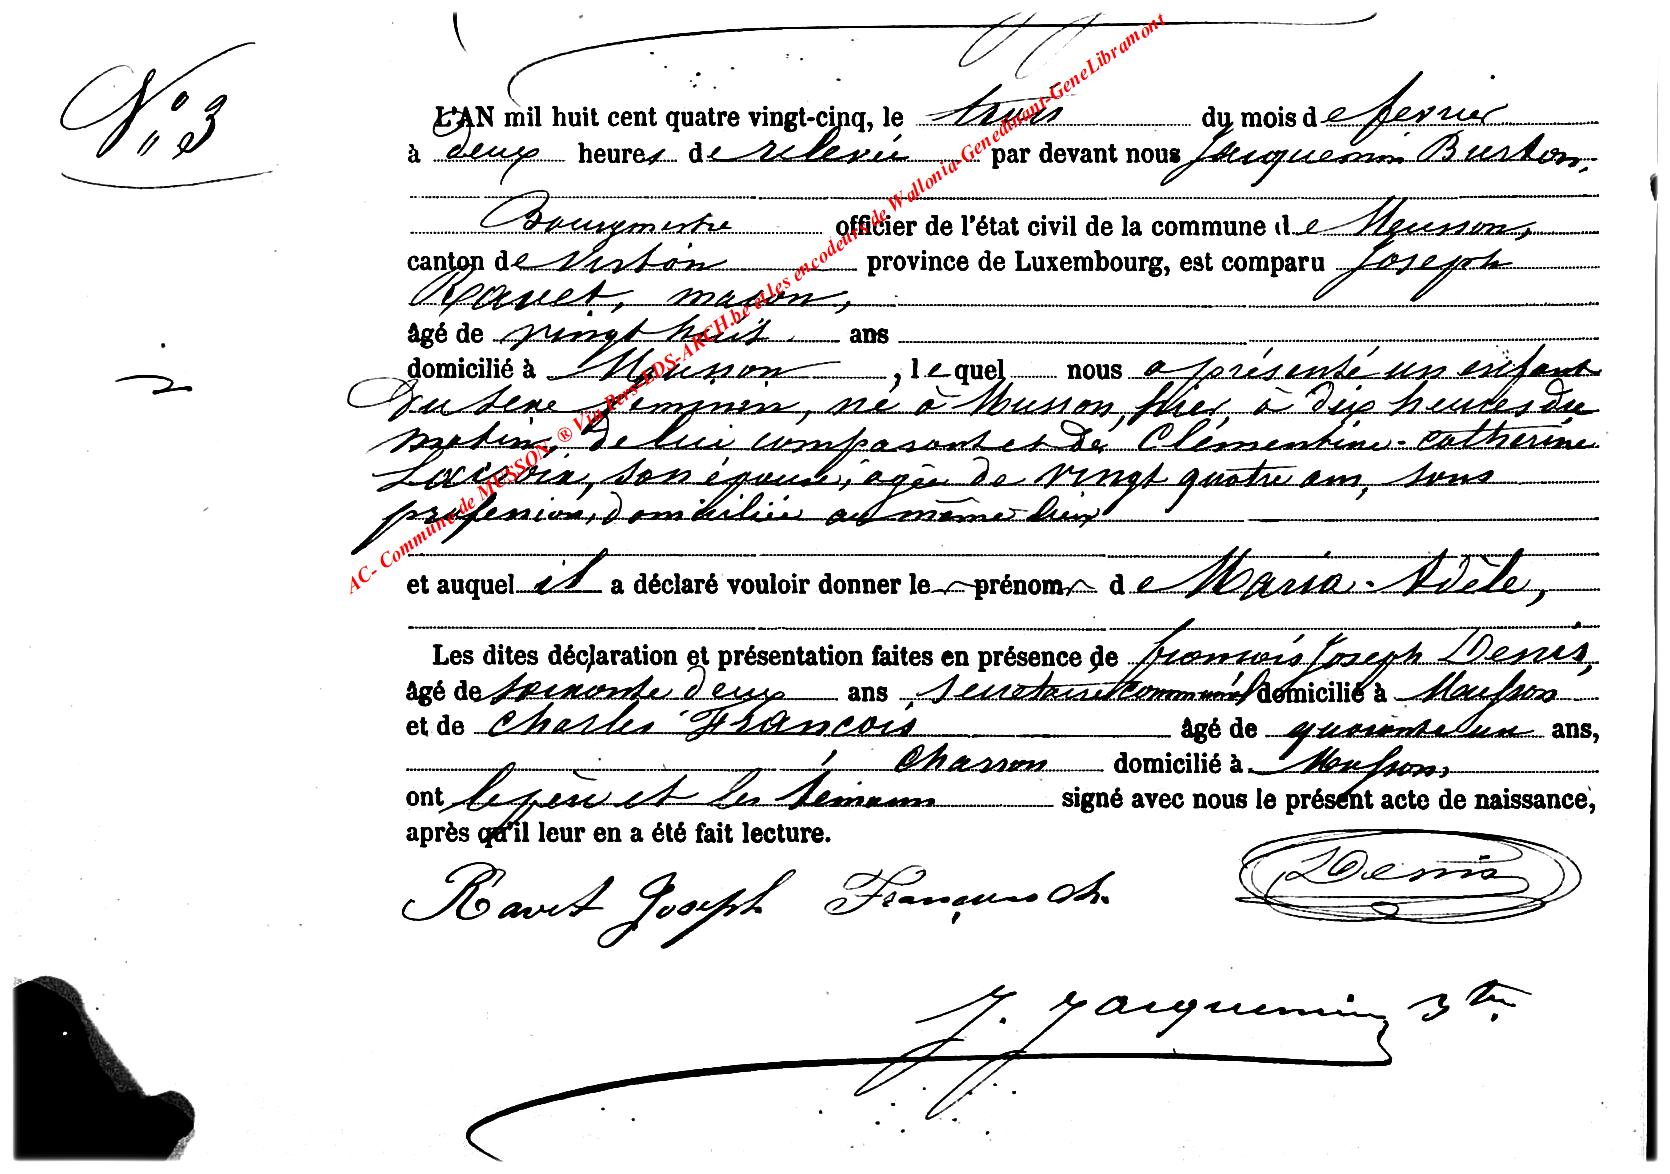 N° 3
L'AN mil huit cent quatre vingt-cinq, le trois du mois de février
à deux heures de relevée par devant nous Jacquemin Burton,
Bourgmestre officier de l'état civil de la commune de Musson,
canton de Virton province de Luxembourg, est comparu Joseph
Ravet, maçon,
âgé de vingt huit ans
domicilié à Musson, lequel nous a présenté un enfant
du sexe féminin, né à Musson, hier, à dix heures du
matin, de lui comparant et de Clémentine-Catherine
son épouse, agée de vingt quatre ans, sans
profession, domiciliée au même lieu
et auquel il a déclaré vouloir donner le prénom de Maria-Adèle,
Les dites déclaration et présentation faites en présence de françois Joseph Denis,
âgé de soixante deux ans, secrétaire communal domicilié à Musson
et de Charles François âgé de quarante un ans,
charron domicilié à Musson,
ont le père et les témoins signé avec nous le présent acte de naissance,
après qu'il leur en a été fait lecture.
Ravet Joseph François Ch. Denis
J. Jacquemin
AC- Commune de MUSSON ® Via Pers-LDS-ARCH.be et les encodeurs de Wallonia-Genedinant-GeneLibramont